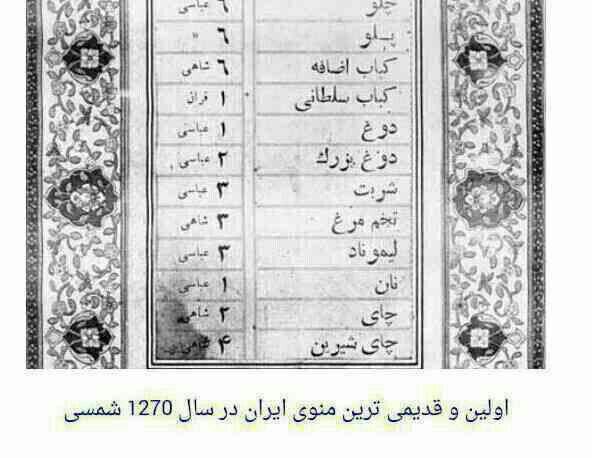 چلو ۶ عباسی
پلو ۶ »
کباب اضافه ۶ شاهی
کباب سلطانی ۱ قران
دوغ ۱ عباسی
دوغ بزرك ۲ عباسی
شربت ۳ عباسی
تخم مرغ ۳ شاهی
لیموناد ۳ عباسی
نان ۱ عباسی
چای ۲ شاهی
چای شیرین ۴ شاهی
اولین و قدیمی ترین منوی ایران در سال 1270 شمسی